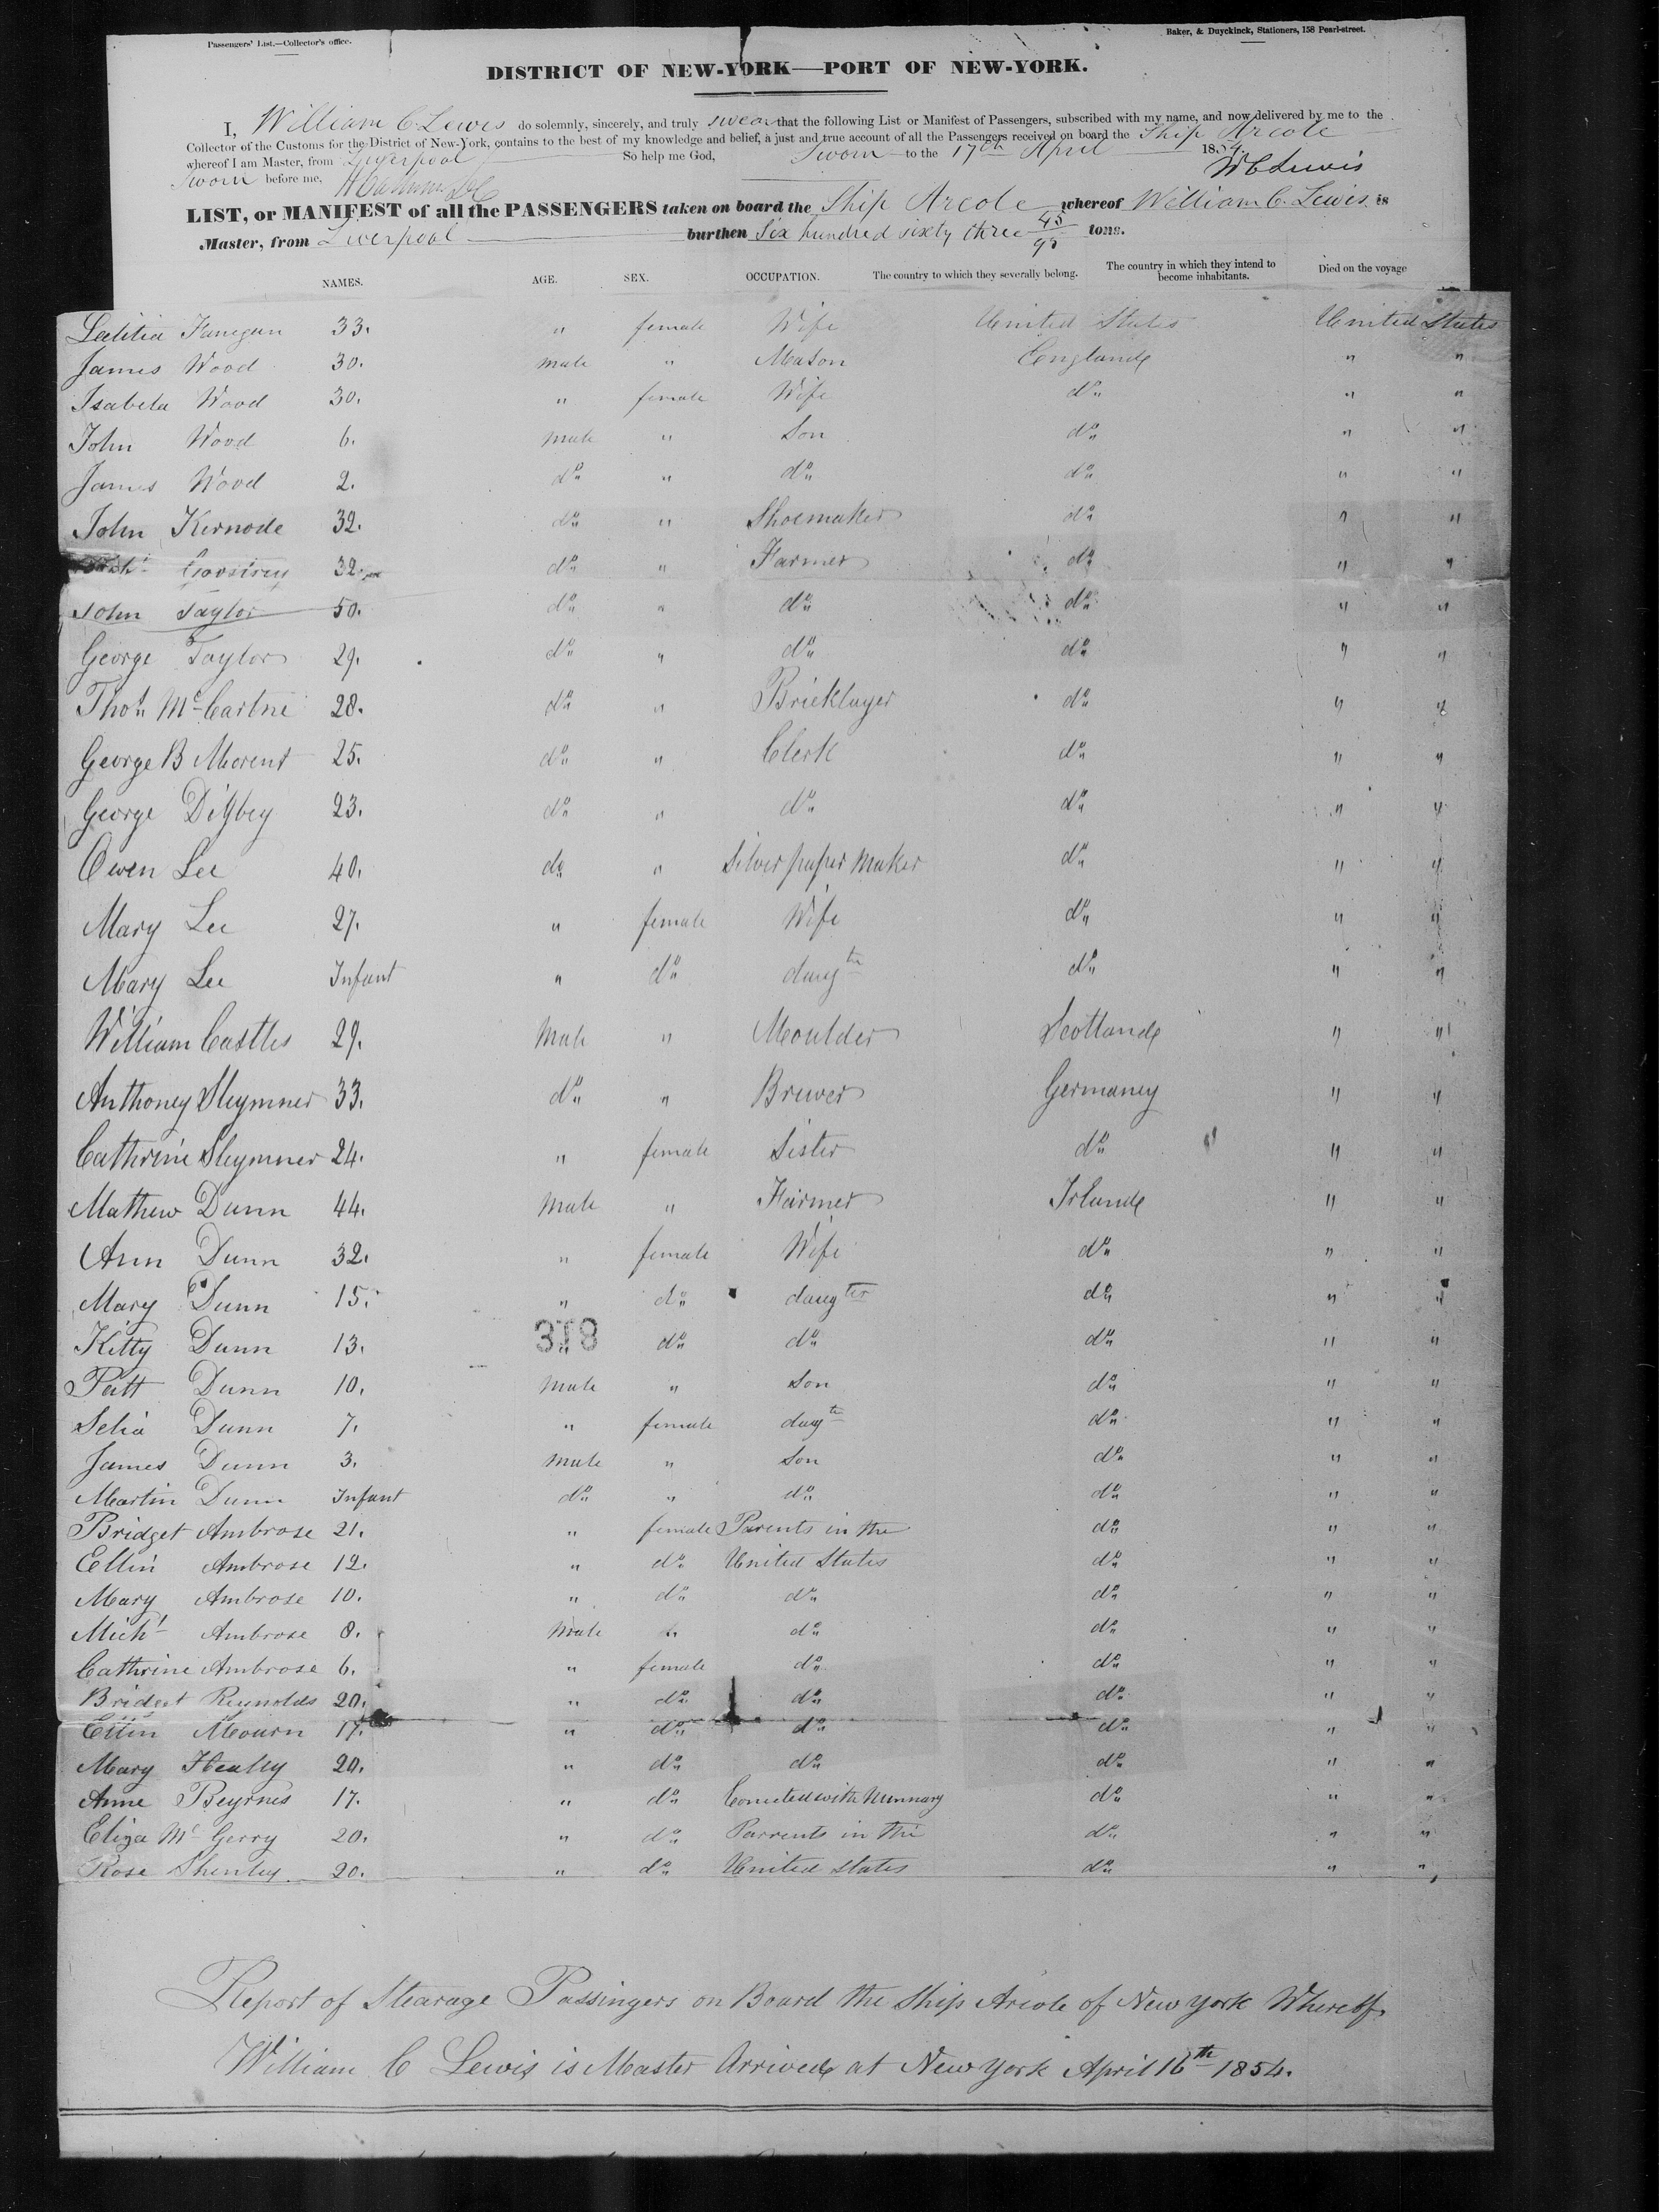 Passengers' List.—Collector's office.
Baker, & Duyckinck, Stationers, 158 Pearl-street.
DISTRICT OF NEW-YORK—PORT OF NEW-YORK.
I, William C Lewis do solemnly, sincerely, and truly swear that the following List or Manifest of Passengers, subscribed with my name, and now delivered by me to the
Collector of the Customs for the District of New-York, contains to the best of my knowledge and belief, a just and true account of all the Passengers received on board the Ship Arcole
whereof I am Master, from Liverpool So help me God, Sworn to the 17th April 1854.
Sworn before me, W C Lewis
LIST, or MANIFEST of all the PASSENGERS taken on board the Ship Arcole whereof William C. Lewis is
Master, from Liverpool burthen Six hundred sixty three 45/95 tons.
NAMES. AGE. SEX. OCCUPATION. The country to which they severally belong. The country in which they intend to become inhabitants. Died on the voyage
Latitia Fanegan 33. " female Wife United States United States
James Wood 30. male " Mason England " "
Isabela Wood 30. " female Wife do " "
John Wood 6. male " Son do " "
James Wood 2. do " do do " "
John Kernode 32. do " Shoemaker do " "
Goosirey 32. do " Farmer do " "
John Taylor 50. do " do do " "
George Taylor 29. do " do do " "
Thos McCartne 28. do " Bricklayer do " "
George B Morent 25. do " Clerk do " "
George Digbey 23. do " do do " "
Owen Lee 40. do " Silver paper maker do " "
Mary Lee 27. " female Wife do " "
Mary Lee Infant " do daugtr do " "
William Castles 29. Male " Moulder Scotland " "
Anthoney Sleymner 33. do " Brewer Germaney " "
Cathrine Sleymner 24. " female Sister do " "
Mathew Dunn 44. Male " Farmer Irland " "
Ann Dunn 32. " female Wife do " "
Mary Dunn 15. " do daugter do " "
Kitty Dunn 13. " do do do " "
318
Patt Dunn 10. Male " Son do " "
Selia Dunn 7. " female daugtr do " "
James Dunn 3. male " Son do " "
Martin Dunn Infant do " do do " "
Bridget Ambrose 21. " female Parents in the do " "
Ellin Ambrose 12. " do United States do " "
Mary Ambrose 10. " do do do " "
Michl Ambrose 8. Male " do do " "
Cathrine Ambrose 6. " female do do " "
Bridget Reynolds 20. " do do do " "
Ellin Mourn 17. " do do do " "
Mary Heally 20. " do do do " "
Anne Beyrnes 17. " do Conected with Nunnary do " "
Eliza Mc Gerry 20. " do Parrents in the do " "
Rose Shenley 20. " do United States do " "
Report of Stearage Passingers on Board the Ship Arcole of New York Whereof
William C Lewis is Master Arrived at New York April 16th 1854.